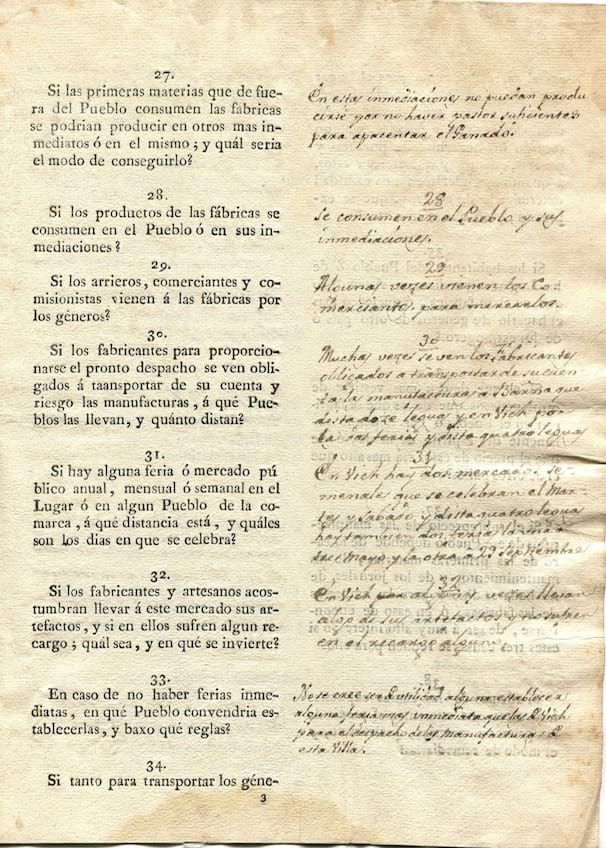 27.
Si las primeras materias que de fue-
ra del Pueblo consumen las fábricas
se podrian producir en otros mas in-
mediatos ó en el mismo; y quál seria
el modo de conseguirlo?
En estas inmediaciones no puedan produ
cirse por no haver pastos suficientes
para apacentar el Ganado.
28.
Si los productos de las fábricas se
consumen en el Pueblo ó en sus in-
mediaciones?
28
Se consumen en el Pueblo y sus
inmediaciones.
29.
Si los arrieros, comerciantes y co-
misionistas vienen á las fábricas por
los géneros?
29
Algunas vezes vienen los Co
merciantes para mercarlos.
30.
Si los fabricantes para proporcio-
narse el pronto despacho se ven obli-
gados á taansportar de su cuenta y
riesgo las manufacturas, á qué Pue-
blos las llevan, y quánto distan?
30
Muchas vezes se ven los Fabricantes
obligados a transportar de su cuen
ta la manufactura a Barna que
dista doze leguas y en Vich por
las dos ferias y dista quatro leguas
31.
Si hay alguna feria ó mercado pú
blico anual, mensual ó semanal en el
Lugar ó en algun Pueblo de la co-
marca, á qué distancia está, y quáles
son los dias en que se celebra?
31
En Vich hay dos mercados se-
menales que se celebran el Mar-
tes y Sabado y dista quatro leguas
hay tambien dos ferias la una a
de Mayo y la otra a 29 septiembre
32.
Si los fabricantes y artesanos acos-
tumbran llevar á este mercado sus ar-
tefactos, y si en ellos sufren algun re-
cargo; quál sea, y en qué se invierte?
32
En Vich por algunas vezes llevan
algo de sus artefactos y no sufren
en el recargo alguno.
33.
En caso de no haber ferias inme-
diatas, en qué Pueblo convendria es-
tablecerlas, y baxo qué reglas?
No se cree ser de utilidad alguna establecer
alguna feria mas inmediata que las de Vich
para el despacho de las Manufacturas de
esta Villa.
34.
Si tanto para transportar los géne-
3